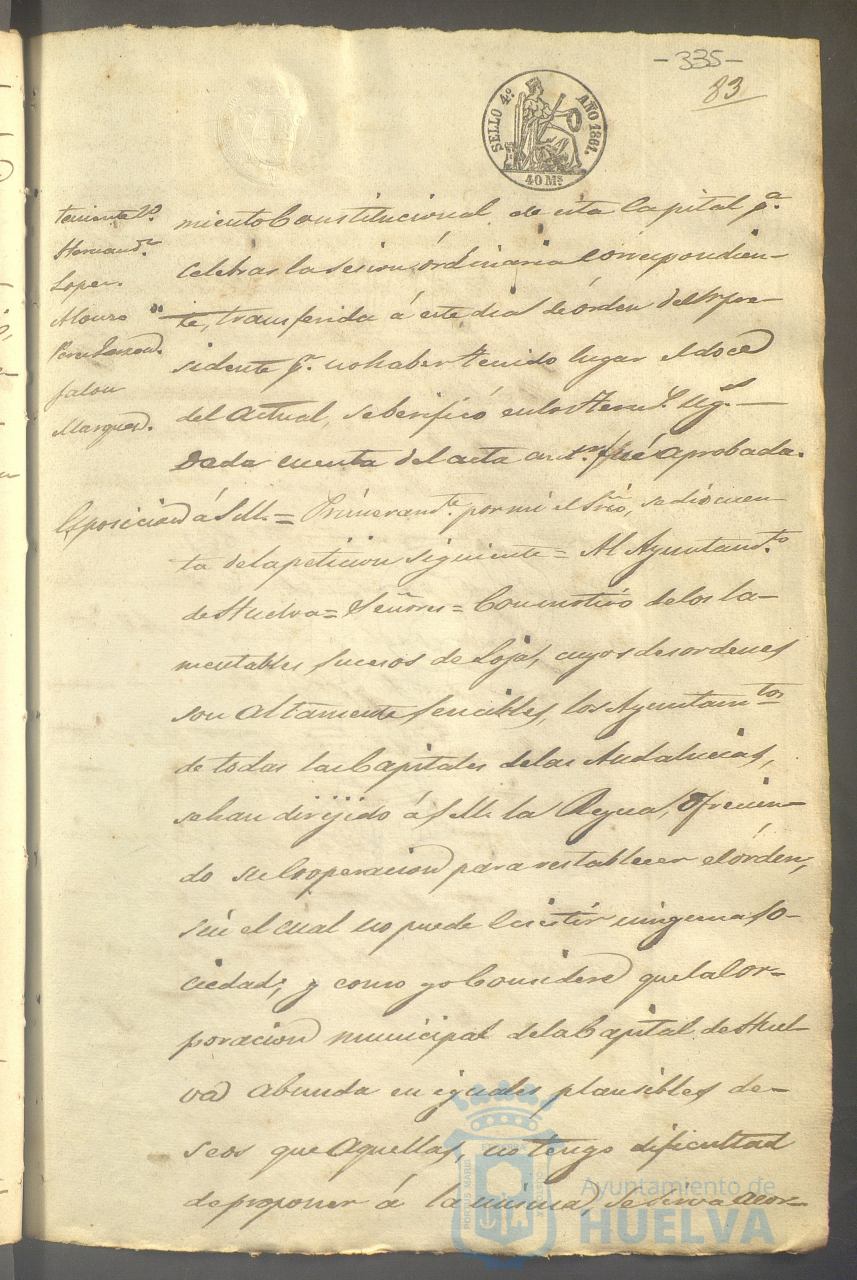 -335-
83
SELLO 4.º AÑO 1861.
40 Ms
teniente 2º
Hernandz
Lopez
Alonso
Perez
Jalon
Marquez.
miento Constitucional de esta Capital pª
celebrar la sesion órdinaria correspondien-
te, transferida á este dia de órden del Sr pre-
sidente pr no haber tenido lugar el doce
del actual, se berificó en los term.s sig.s
Dada cuenta del acta antr. fué aprobada.
Esposicion á S.M. = Primeramte por mi el Srio, se dió cuen-
ta de la peticion siguiente = Al Ayuntamto
de Huelva = Señores = Con motivo de los la-
mentables sucesos de Loja, cuyos desordenes
son altamente sencibles, los Ayuntamtos
de todas las Capitales de las Andalucias,
se han dirijido á S.M. la Reyna, ofrecien-
do su Cooperacion para restablecer el órden,
sin el cual no puede Ecsistir ninguna so-
ciedad; y como yo Considere que la Cor-
poracion municipal de la Capital de Huel-
va abunda en iguales plausibles de-
seos que aquellas, no tengo dificultad
de proponer á la misma, se sirva acor-
Ayuntamiento de
HUELVA